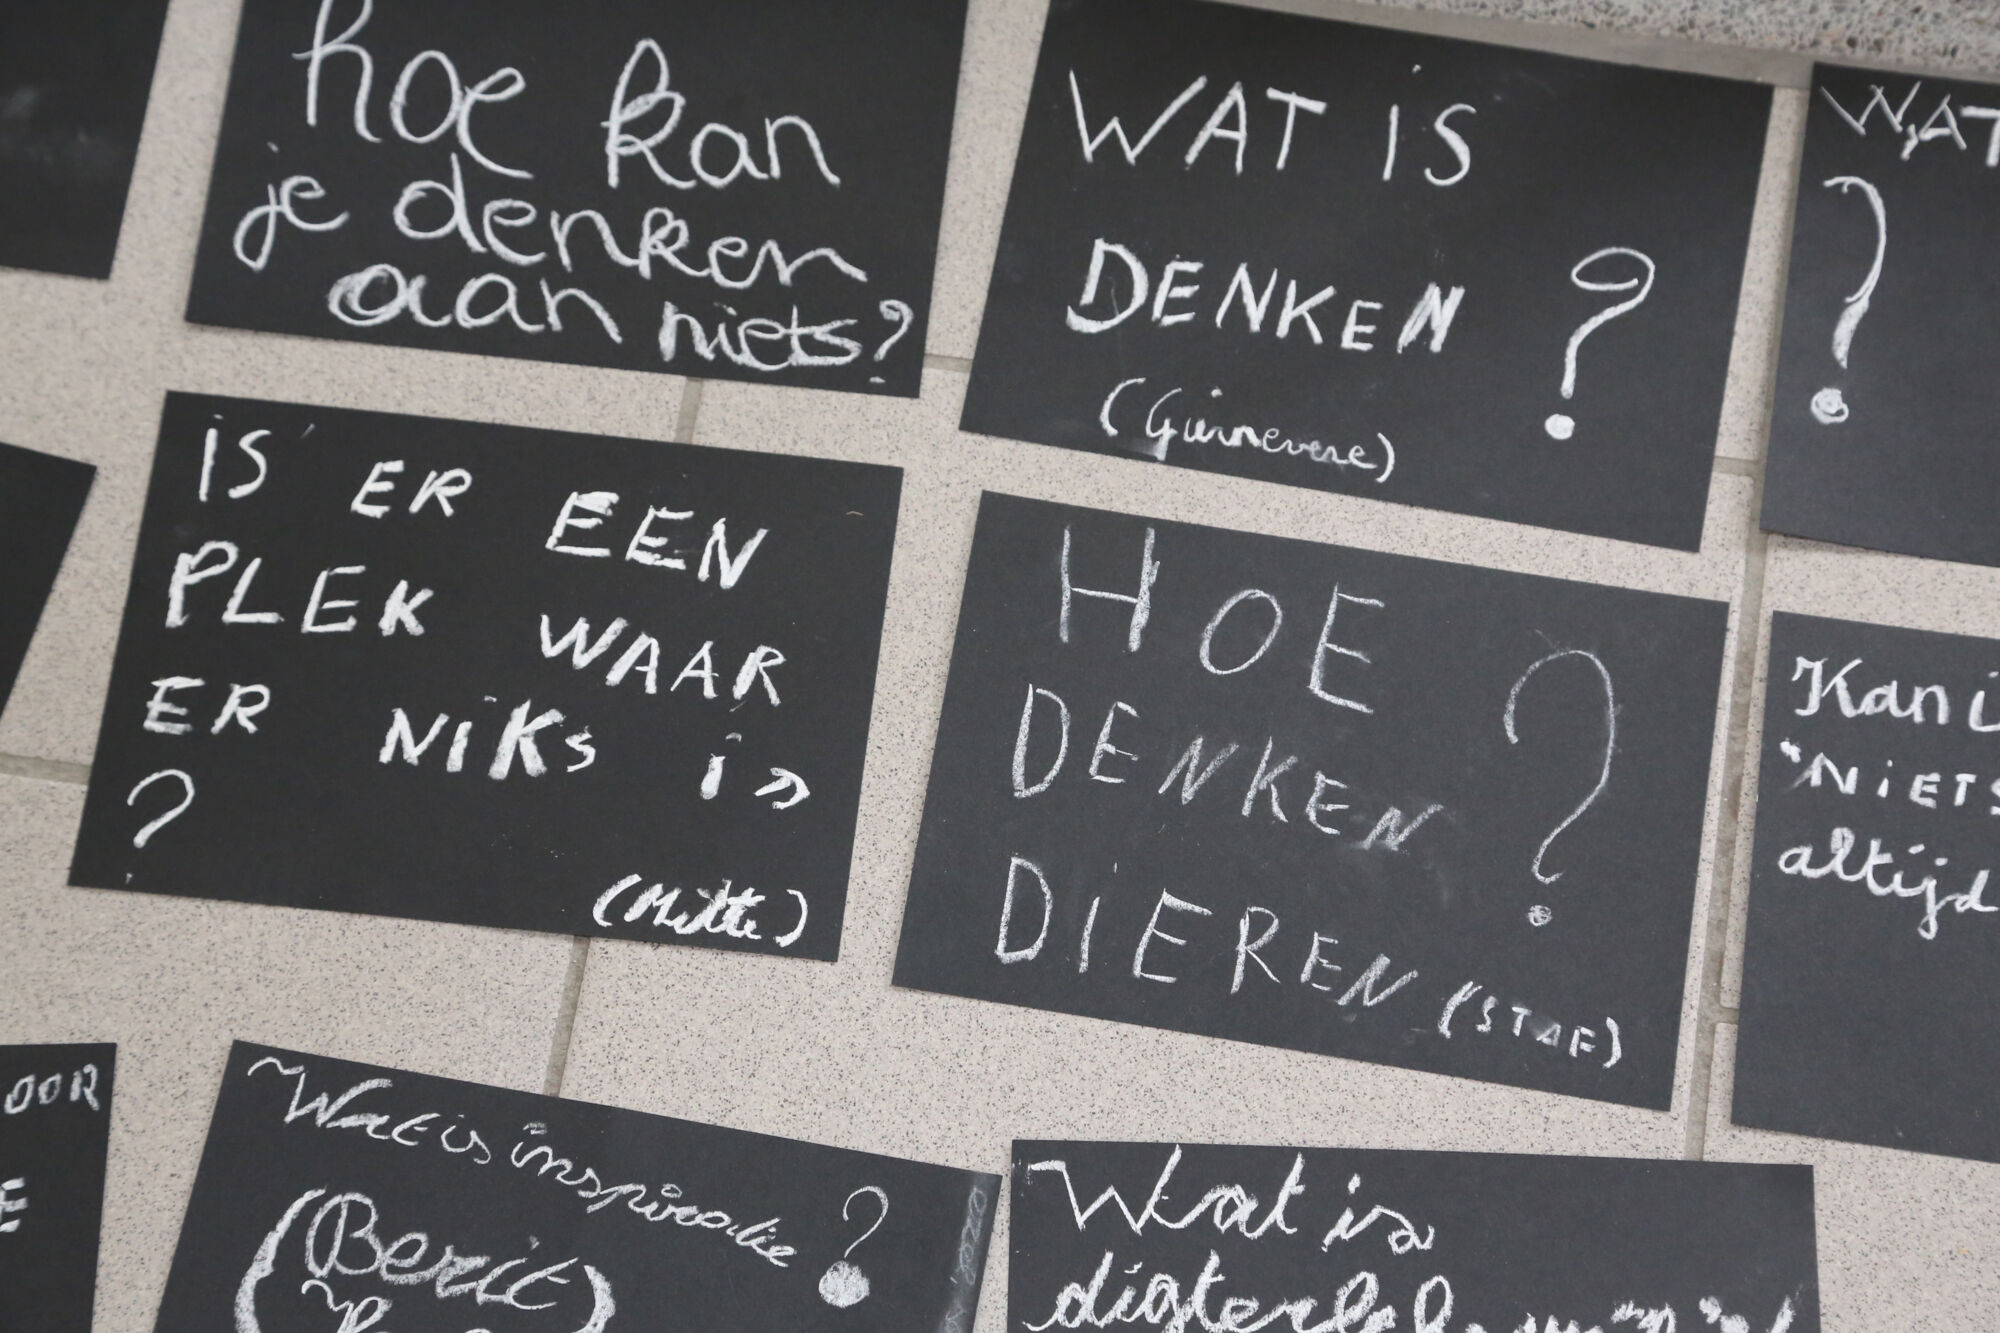 hoe kan
je denken
aan niets?
WAT IS
DENKEN ?
(Guinevere)
WAT
?
IS ER EEN
PLEK WAAR
ER NIKS is
?
(Mitte)
HOE
DENKEN ?
DIEREN (STAF)
Kan i
"NIETS
altijd
OOR
E
Wat is inspiratie ?
(Berit)
Wat is